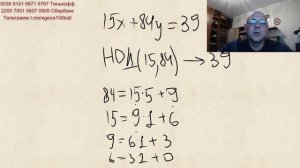 5536 9141 6671 5767 Тинькофф
2200 7001 5607 0905 Сбербанк
Телеграмм t.me/egera100ball
15x + 84y = 39
НОД(15,84) → 39
84 = 15·5 + 9
15 = 9·1 + 6
9 = 6·1 + 3
6 = 3·2 + 0